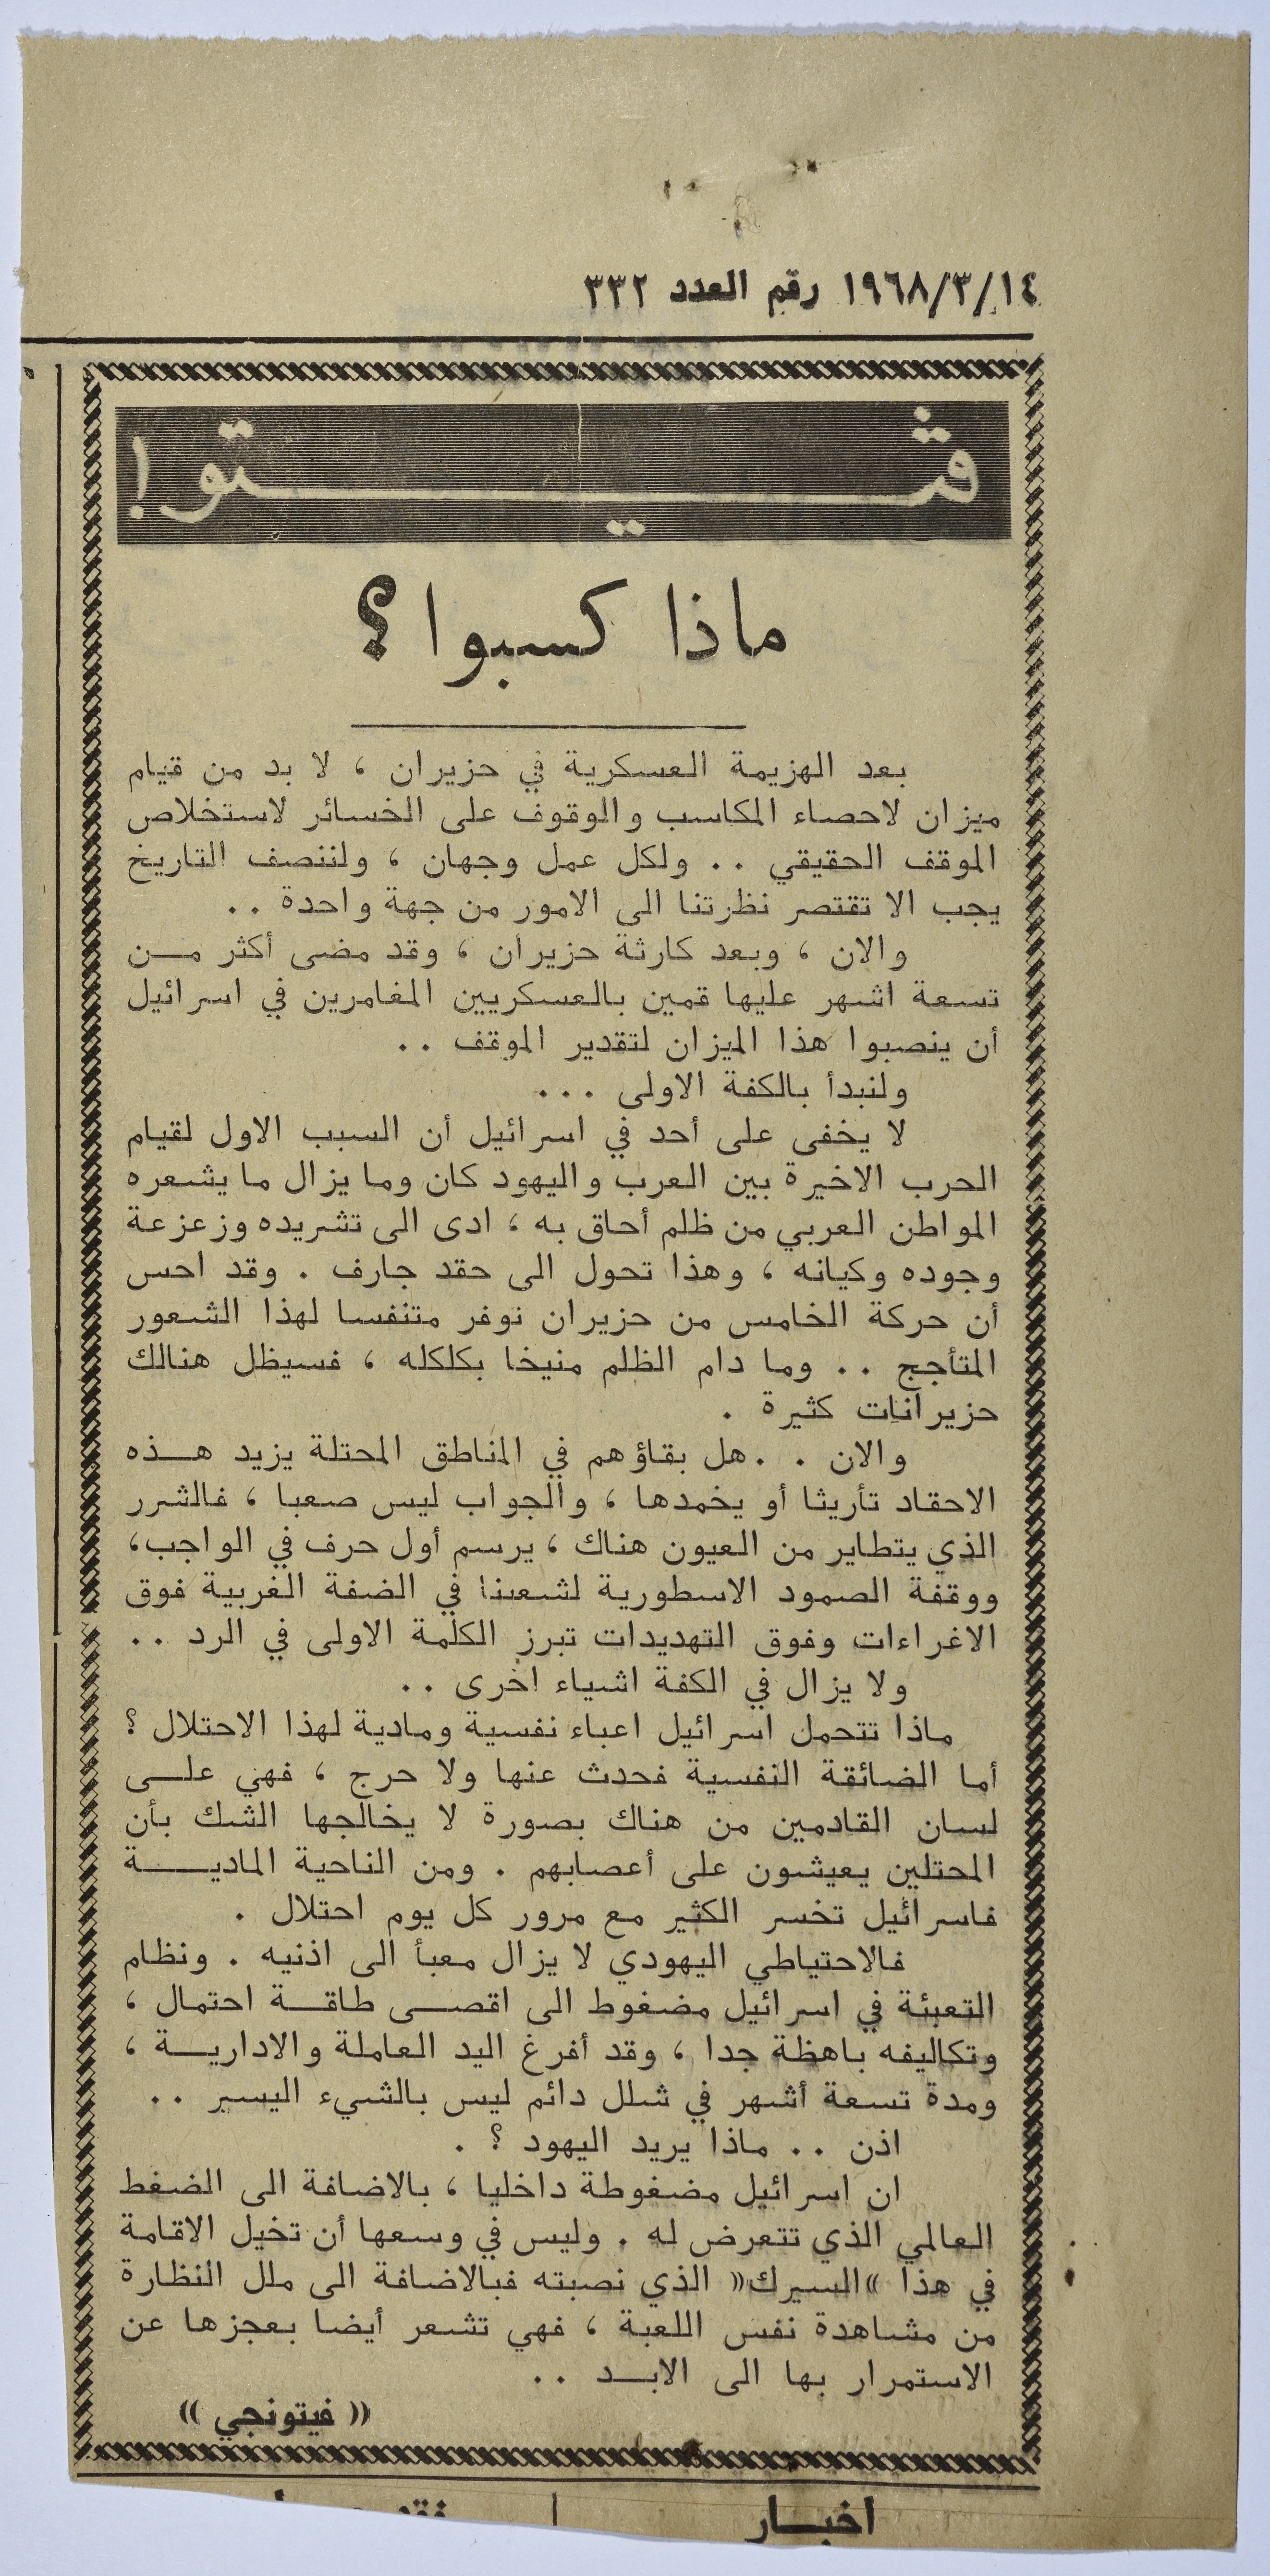 ١٩٦٨/٣/١٤ رقم العدد ٣٣٢
ڤيتو!
ماذا كسبوا؟
بعد الهزيمة العسكرية في حزيران ، لا بد من قيام
ميزان لاحصاء المكاسب والوقوف على الخسائر لاستخلاص
الموقف الحقيقي .. ولكل عمل وجهان ، ولننصف التاريخ
يجب الا تقتصر نظرتنا الى الامور من جهة واحدة ..
والان ، وبعد كارثة حزيران ، وقد مضى أكثر مـن
تسعة اشهر عليها قمين بالعسكريين المغامرين في اسرائيل
أن ينصبوا هذا الميزان لتقدير الموقف ..
ولنبدأ بالكفة الاولى ...
لا يخفى على أحد في اسرائيل أن السبب الاول لقيام
الحرب الاخيرة بين العرب واليهود كان وما يزال ما يشعره
المواطن العربي من ظلم أحاق به ، ادى الى تشريده وزعزعة
وجوده وكيانه ، وهذا تحول الى حقد جارف . وقد احس
أن حركة الخامس من حزيران توفر متنفسا لهذا الشعور
المتأجج .. وما دام الظلم منيخا بكلكله ، فسيظل هنالك
حزيرانات كثيرة .
والان . . هل بقاؤهم في المناطق المحتلة يزيد هــذه
الاحقاد تأريثا أو يخمدها ، والجواب ليس صعبا ، فالشرر
الذي يتطاير من العيون هناك ، يرسم أول حرف في الواجب،
ووقفة الصمود الاسطورية لشعبنا في الضفة الغربية فوق
الاغراءات وفوق التهديدات تبرز الكلمة الاولى في الرد ..
ولا يزال في الكفة اشياء اخرى ..
ماذا تتحمل اسرائيل اعباء نفسية ومادية لهذا الاحتلال ؟
أما الضائقة النفسية فحدث عنها ولا حرج ، فهي علــى
لسان القادمين من هناك بصورة لا يخالجها الشك بأن
المحتلين يعيشون على أعصابهم . ومن الناحية الماديــــة
فاسرائيل تخسر الكثير مع مرور كل يوم احتلال .
فالاحتياطي اليهودي لا يزال معبأ الى اذنيه . ونظام
التعبئة في اسرائيل مضغوط الى اقصــى طاقــة احتمال ،
وتكاليفه باهظة جدا ، وقد أفرغ اليد العاملة والاداريــة ،
ومدة تسعة أشهر في شلل دائم ليس بالشيء اليسير ..
اذن .. ماذا يريد اليهود ؟ .
ان اسرائيل مضغوطة داخليا ، بالاضافة الى الضغط
العالمي الذي تتعرض له . وليس في وسعها أن تخيل الاقامة
في هذا »السيرك« الذي نصبته فبالاضافة الى ملل النظارة
من مشاهدة نفس اللعبة ، فهي تشعر أيضا بعجزها عن
الاستمرار بها الى الابــد ..
(( فيتونجي ))
اخبــار